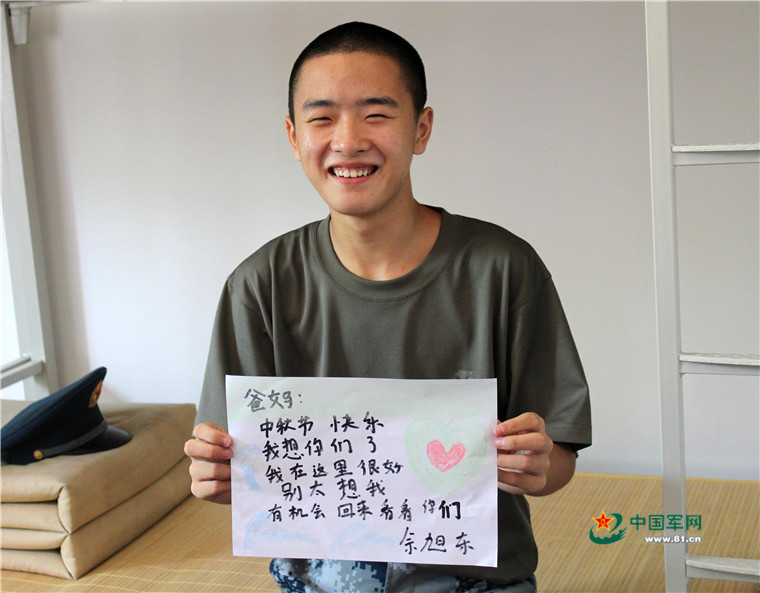 爸妈：
中秋节 快乐
我想你们了
我在这里很好
别太想我
有机会回来看看你们
余旭东
中国军网
www.81.cn